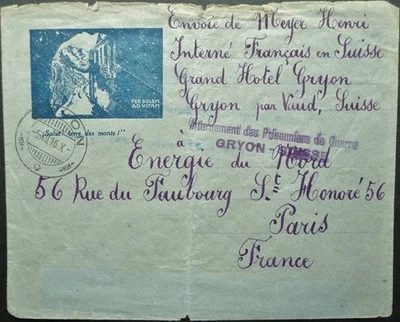 Envoie de Meyer Henri
Interné Français en Suisse
Grand Hotel Gryon
Gryon par Vaud, Suisse
PER SOLEM
AD VITAM
"Salut! terre des monts!"
Internement des Prisonniers de Guerre
GRYON - SUISSE
à
Energie du Nord
56 Rue du Faubourg St Honoré 56
Paris
France